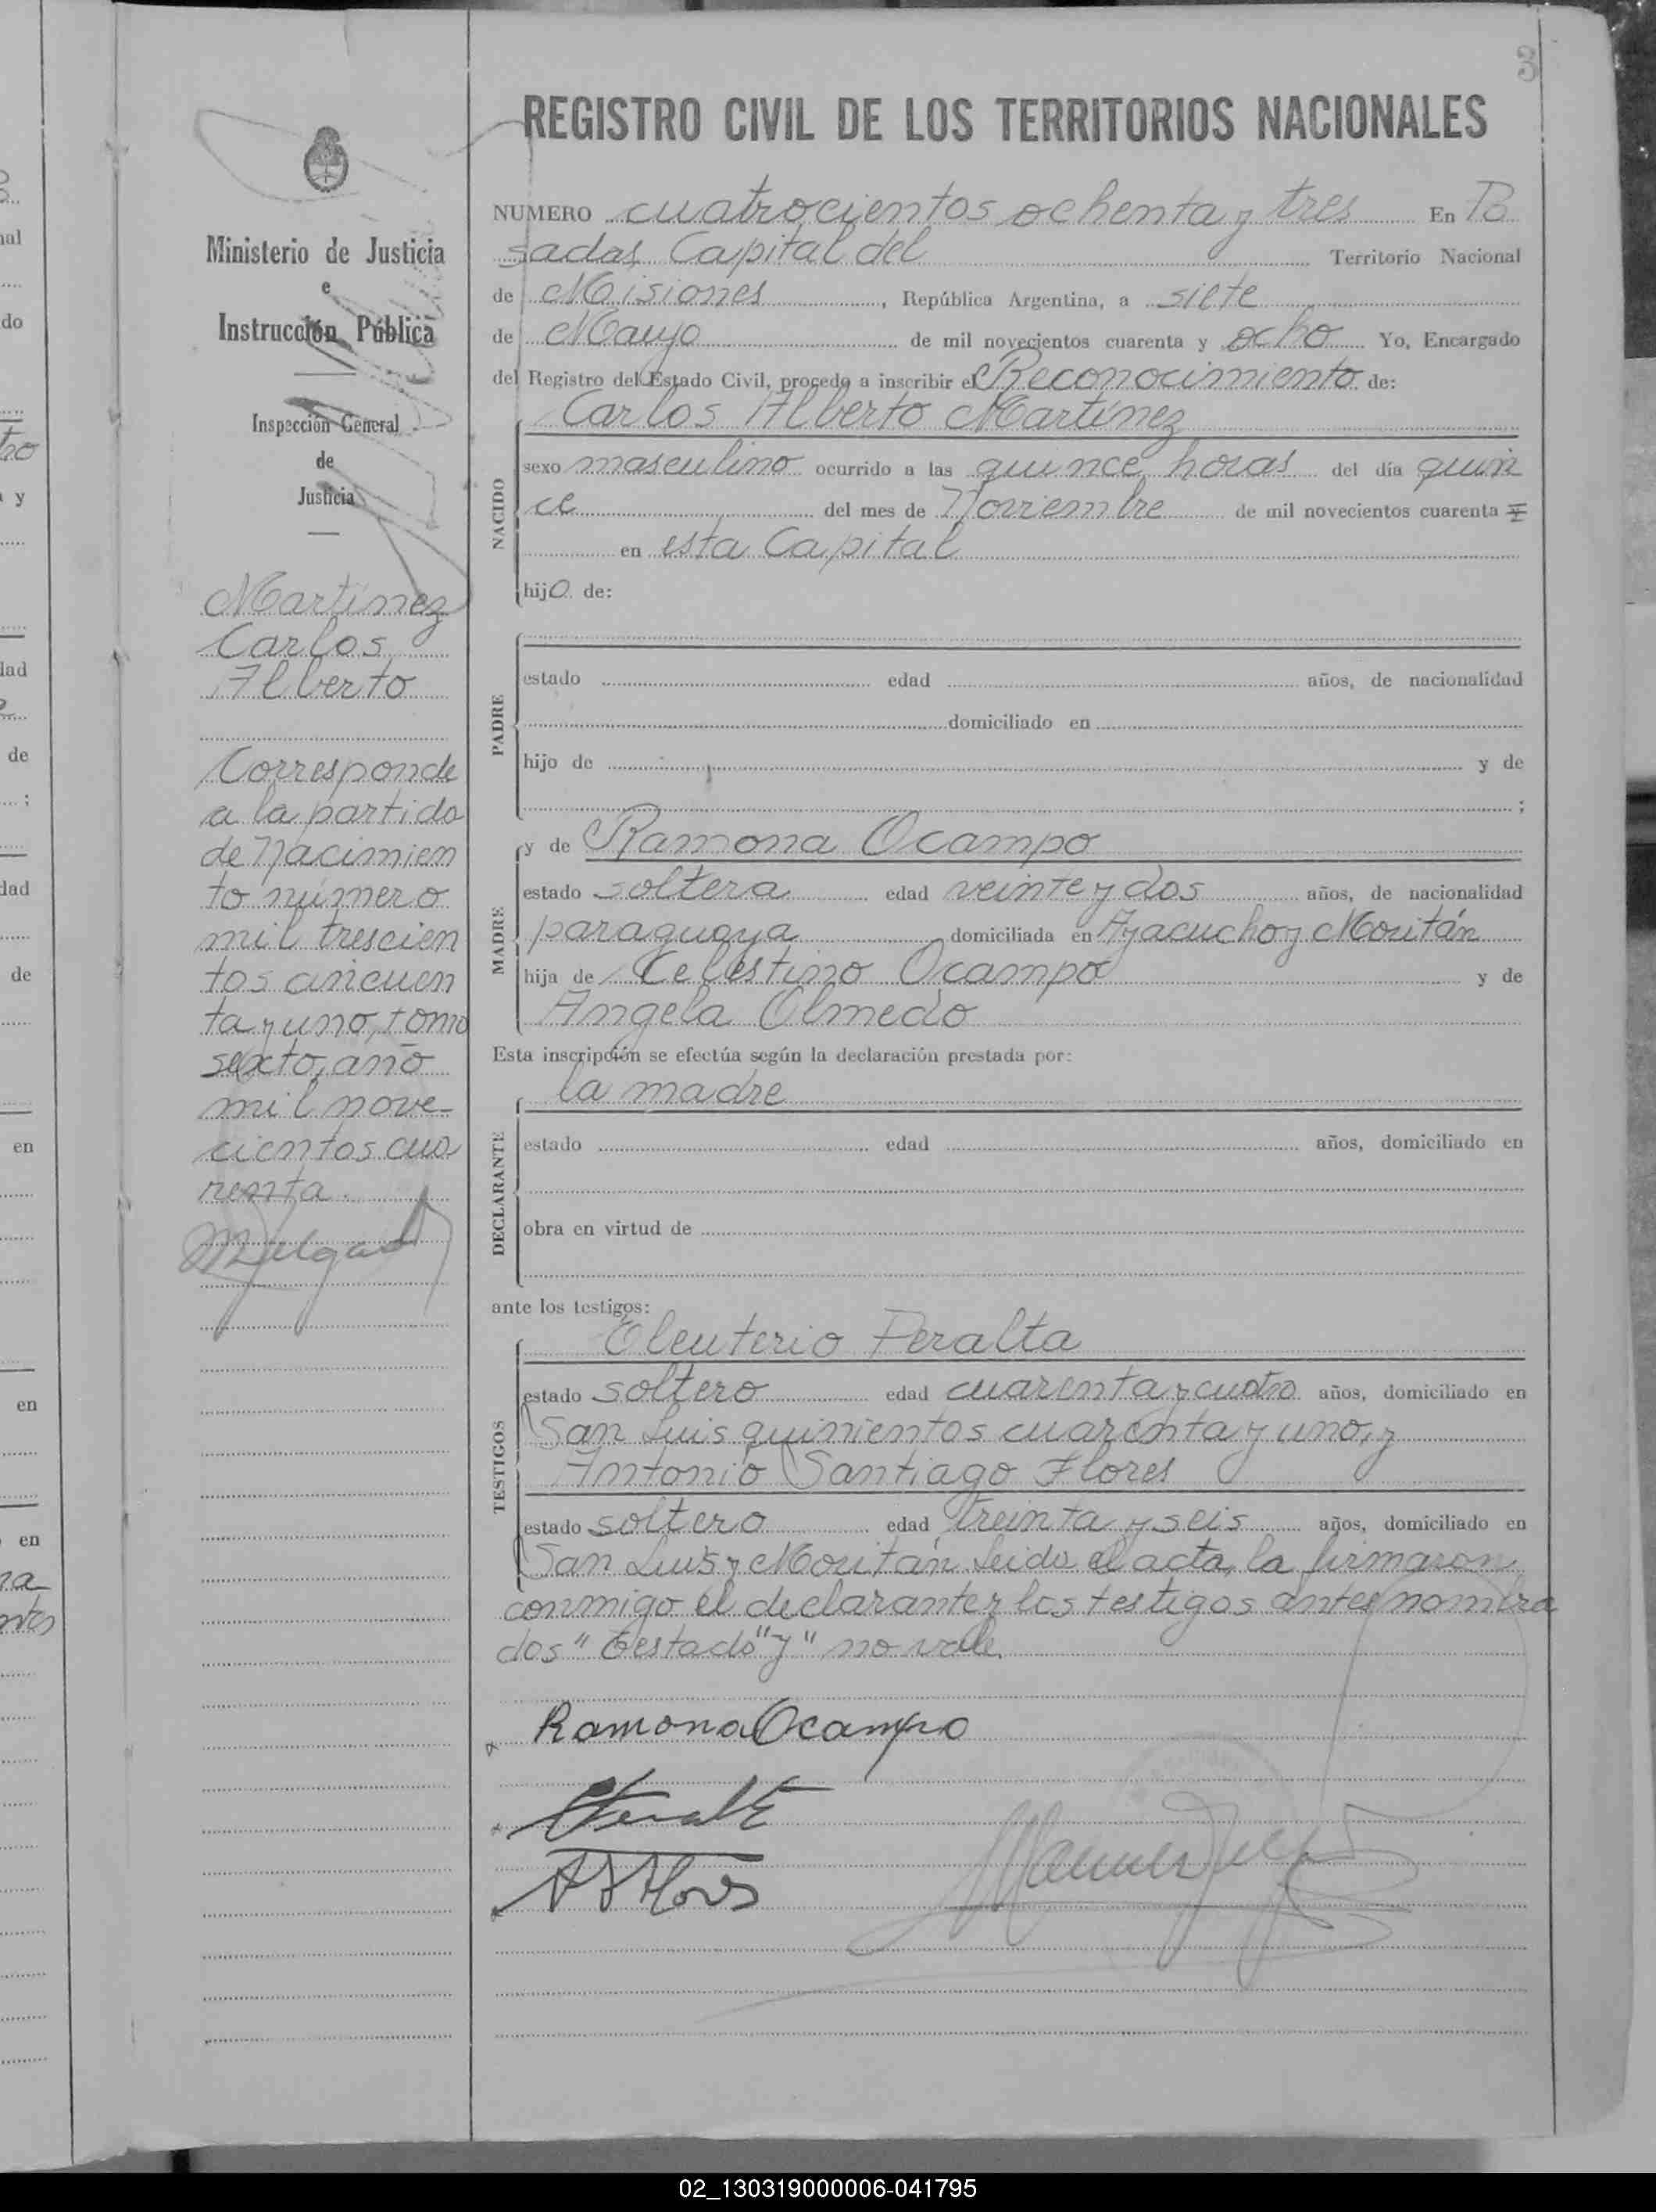 3
REGISTRO CIVIL DE LOS TERRITORIOS NACIONALES
Ministerio de Justicia
e
Instrucción Pública
Inspección General
de
Justicia
Martinez
Carlos
Alberto
Corresponde
a la partida
de Nacimien
to número
mil trescien
tos cincuen
ta y uno, tomo
sexto, año
mil nove-
cientos cua
renta.
NUMERO cuatrocientos ochenta y tres En Po
sadas Capital del Territorio Nacional
de Misiones, República Argentina, a siete
de Mayo de mil novecientos cuarenta y ocho Yo, Encargado
del Registro del Estado Civil, procedo a inscribir el Reconocimiento de:
Carlos Alberto Martínez
NACIDO
sexo masculino ocurrido a las quince horas del día quin
ce del mes de Noviembre de mil novecientos cuarenta y
en esta Capital
hijo de:
PADRE
estado edad años, de nacionalidad
domiciliado en
hijo de y de
;
MADRE
y de Ramona Ocampo
estado soltera edad veinte y dos años, de nacionalidad
paraguaya domiciliada en Ayacucho y Moritán
hija de Celestino Ocampo y de
Angela Olmedo
Esta inscripción se efectúa según la declaración prestada por:
la madre
DECLARANTE
estado edad años, domiciliado en
obra en virtud de
ante los testigos:
Eleuterio Peralta
TESTIGOS
estado soltero edad cuarenta y cuatro años, domiciliado en
San Luis quinientos cuarenta y uno, y
Antonio Santiago Flores
estado soltero edad treinta y seis años, domiciliado en
San Luis y Moritán. Leida el acta, la firmaron
conmigo el declarante y los testigos antes nombra
dos "Testado" y "no vale.
Ramona Ocampo
A S Flores
02_130319000006-041795